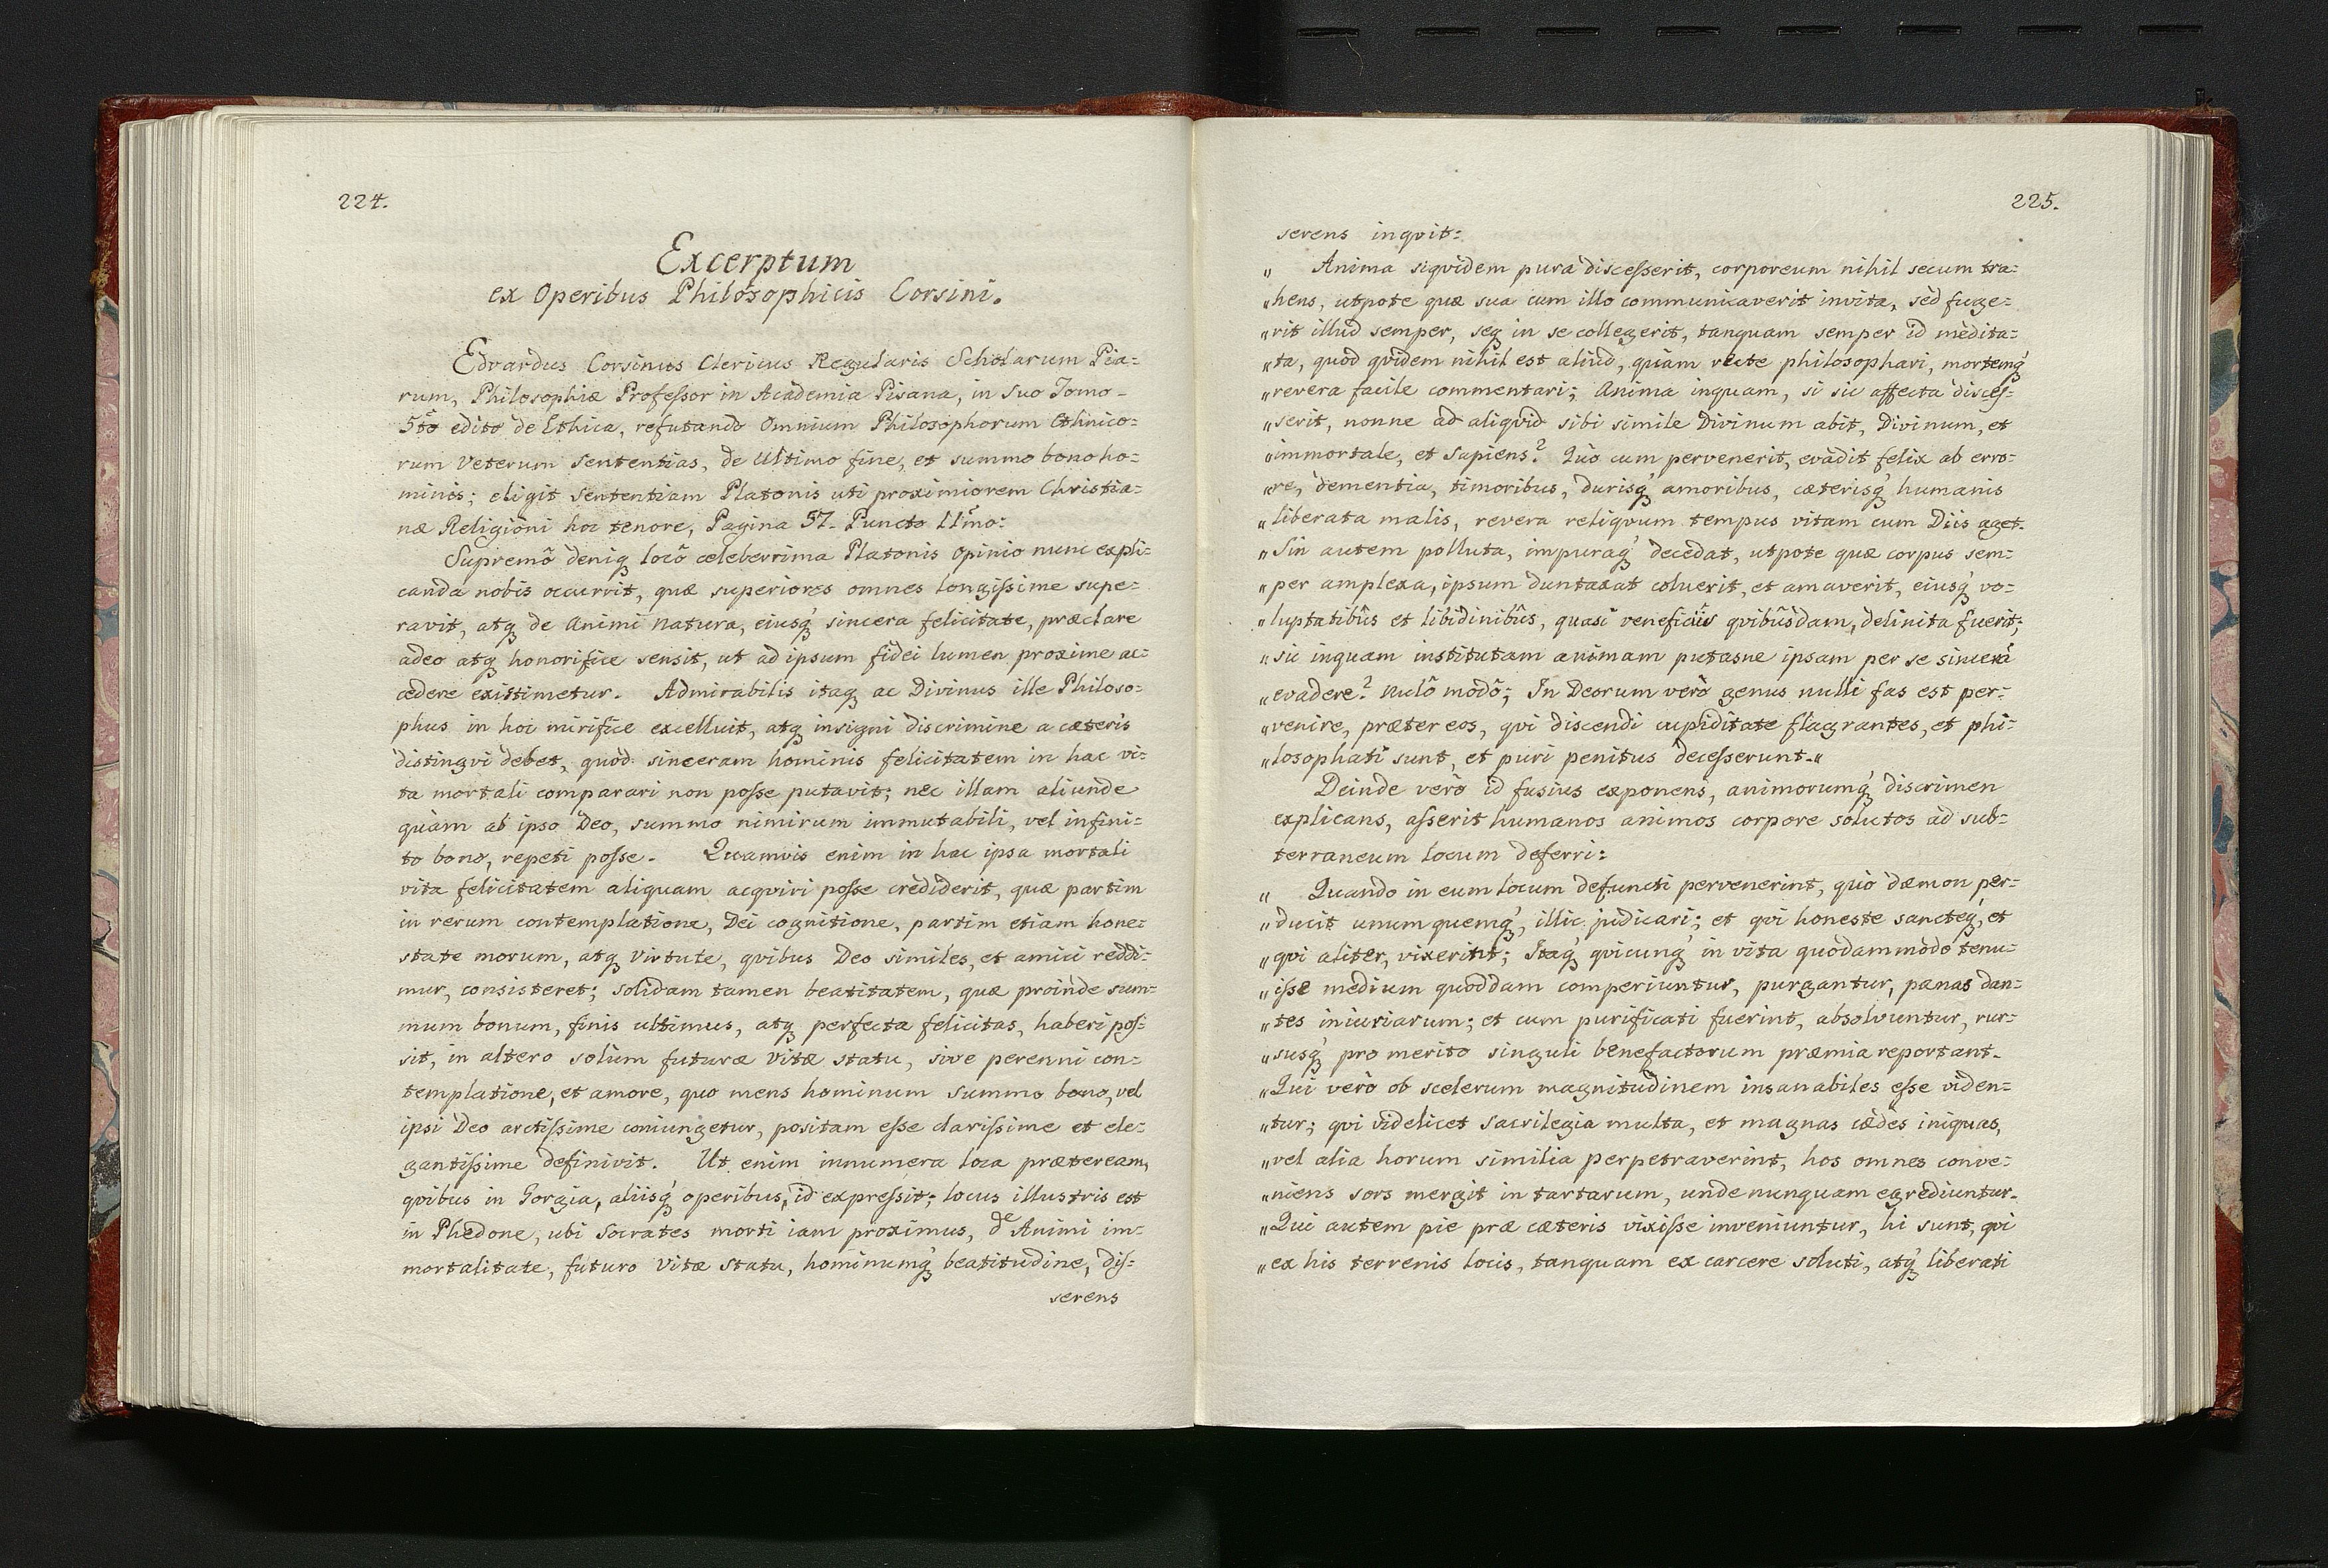 224.
Excerptum
ex Operibus Philosophicis Corsini.
Edvardus Corsinus Clericus Regularis Scholarum Pia=
rum, Philosophiæ Profeſsor in Academia Pisana, in suo Tomo-
5to edito de Ethica, refutando Omnium Philosophorum Ethnico=
rum Veterum Sententias, de Ultimo fine, et summo bono ho=
minis; eligit Sententiam Platonis uti proximiorem Christia=
næ Religioni hoc tenore, Pagina 57. Puncto 11mo:
Supremô deniq̨ locô celeberrima Platonis opinio nunc expli=
canda nobis occurrit, quæ superiores omnes longiſsime supe=
ravit, atq̨ de Animi Natura, eiusq̨́ sincera felicitate, præclare
adeo atq̨ honorifice sensit, ut ad ipsum fidei lumen proxime ac=
cedere existimetur. Admirabilis itaq̨ ac Divinus ille Philoso=
phus in hoc mirifice excelluit, atq̨ insigni discrimine a cæteris
distingvi debet, quod sinceram hominis felicitatem in hac vi=
ta mortali comparari non poſse putavit; nec illam aliunde
quàm ab ipso Deo, summo nimirum immutabili, vel infini=
to bono, repeti poſse. Quamvis enim in hac ipsa mortali
vita felicitatem aliquam acqviri poſse crediderit, quæ partim
in rerum contemplatione, Dei cognitione, partim etiam hone=
state morum, atq̨ virtute, qvibus Deo similes, et amici reddi=
mur, consisteret; solidam tamen beatitatem, quæ proinde sum=
mum bonum, finis ultimus, atq̨ perfecta felicitas, haberi poſ=
sit, in altero solùm futuræ vitæ statu, sive perenni con=
templatione, et amore, quo mens hominum summo bono, vel
ipsi Deo arctiſsime coniungetur, positam eſse clariſsime et ele=
gantiſsime definivit. Ut enim innumera loca præteream,
qvibus in Gorgia, aliisq̨́ operibus, id expreſsit; locus illustris est
in Phedone, ubi Socrates morti iam proximus, de Animi im=
mortalitate, futuro vitæ statu, hominumq̨́ beatitudine, diſ=
serens
225.
serens inqvit:
„ Anima siqvidem pura diſceſserit, corporeum nihil secum tra=
„hens, utpote quæ sua cum illo communicaverit invita, sed fuge=
„rit illud semper, seq̨ in se collegerit, tanquam semper id medita=
„ta, quod qvidem nihil est aliud, quàm recte philosophari, mortemq̨́
„revera facile commentari; Anima inquam, si sic affecta disceſ=
„serit, nonne ad aliqvid sibi simile Divinum abit, Divinum, et
„immortale, et sapiens? Quò cum pervenerit, evadit felix ab erro=
„re, dementia, timoribus, durisq̨́ amoribus, cæterisq̨́ humanis
„liberata malis, revera reliqvum tempus vitam cum Diis aget.
„Sin autem polluta, impuraq̨́ decedat, utpote quæ corpus sem=
„per amplexa, ipsum duntaxat coluerit, et amaverit, eiusq̨́ vo=
„luptatibûs et libidinibûs, quasi veneficiis qvibûsdam, delinita fuerit;
„sic inquam institutam animam putasne ipsam per se sincerá
„evadere? Nulô modô; In Deorum verò genus nulli fas est per=
„venire, præter eos, qvi discendi cupiditate flagrantes, et phi=
„losophati sunt, et puri penitus deceſserunt.„
Deinde verò id fusius exponens, animorumq̨́ discrimen
explicans, aſserit humanos animos corpore solutos ad sub=
terraneum locum deferri:
„ Quando in eum locum defuncti pervenerint, quò dæmon per=
„ducit unumquemq̨́, illic judicari; et qvi honeste sancteq̨́, et
„qvi aliter, vixerint; Itaq̨́ qvicunq̨́ in vita quodammodo tenu=
„iſse medium quoddam comperiuntur, purgantur, pænas dan=
„tes iniuriarum; et cum purificati fuerint, absolvuntur, rur=
„susq̨́ pro merito singuli benefactorum præmia reportant.
„Qui verò ob scelerum magnitudinem insanabiles eſse viden=
„tur; qvi videlicet sacrilegia multa, et magnas cædes iniquas,
„vel alia horum similia perpetraverint, hos omnes conve=
„niens sors mergit in tartarum, unde nunquam egrediuntur.
„Qui autem pie præ cæteris vixiſse inveniuntur, hi sunt, qvi
„ex his terrenis locis, tanquam ex carcere soluti, atq̨́ liberati